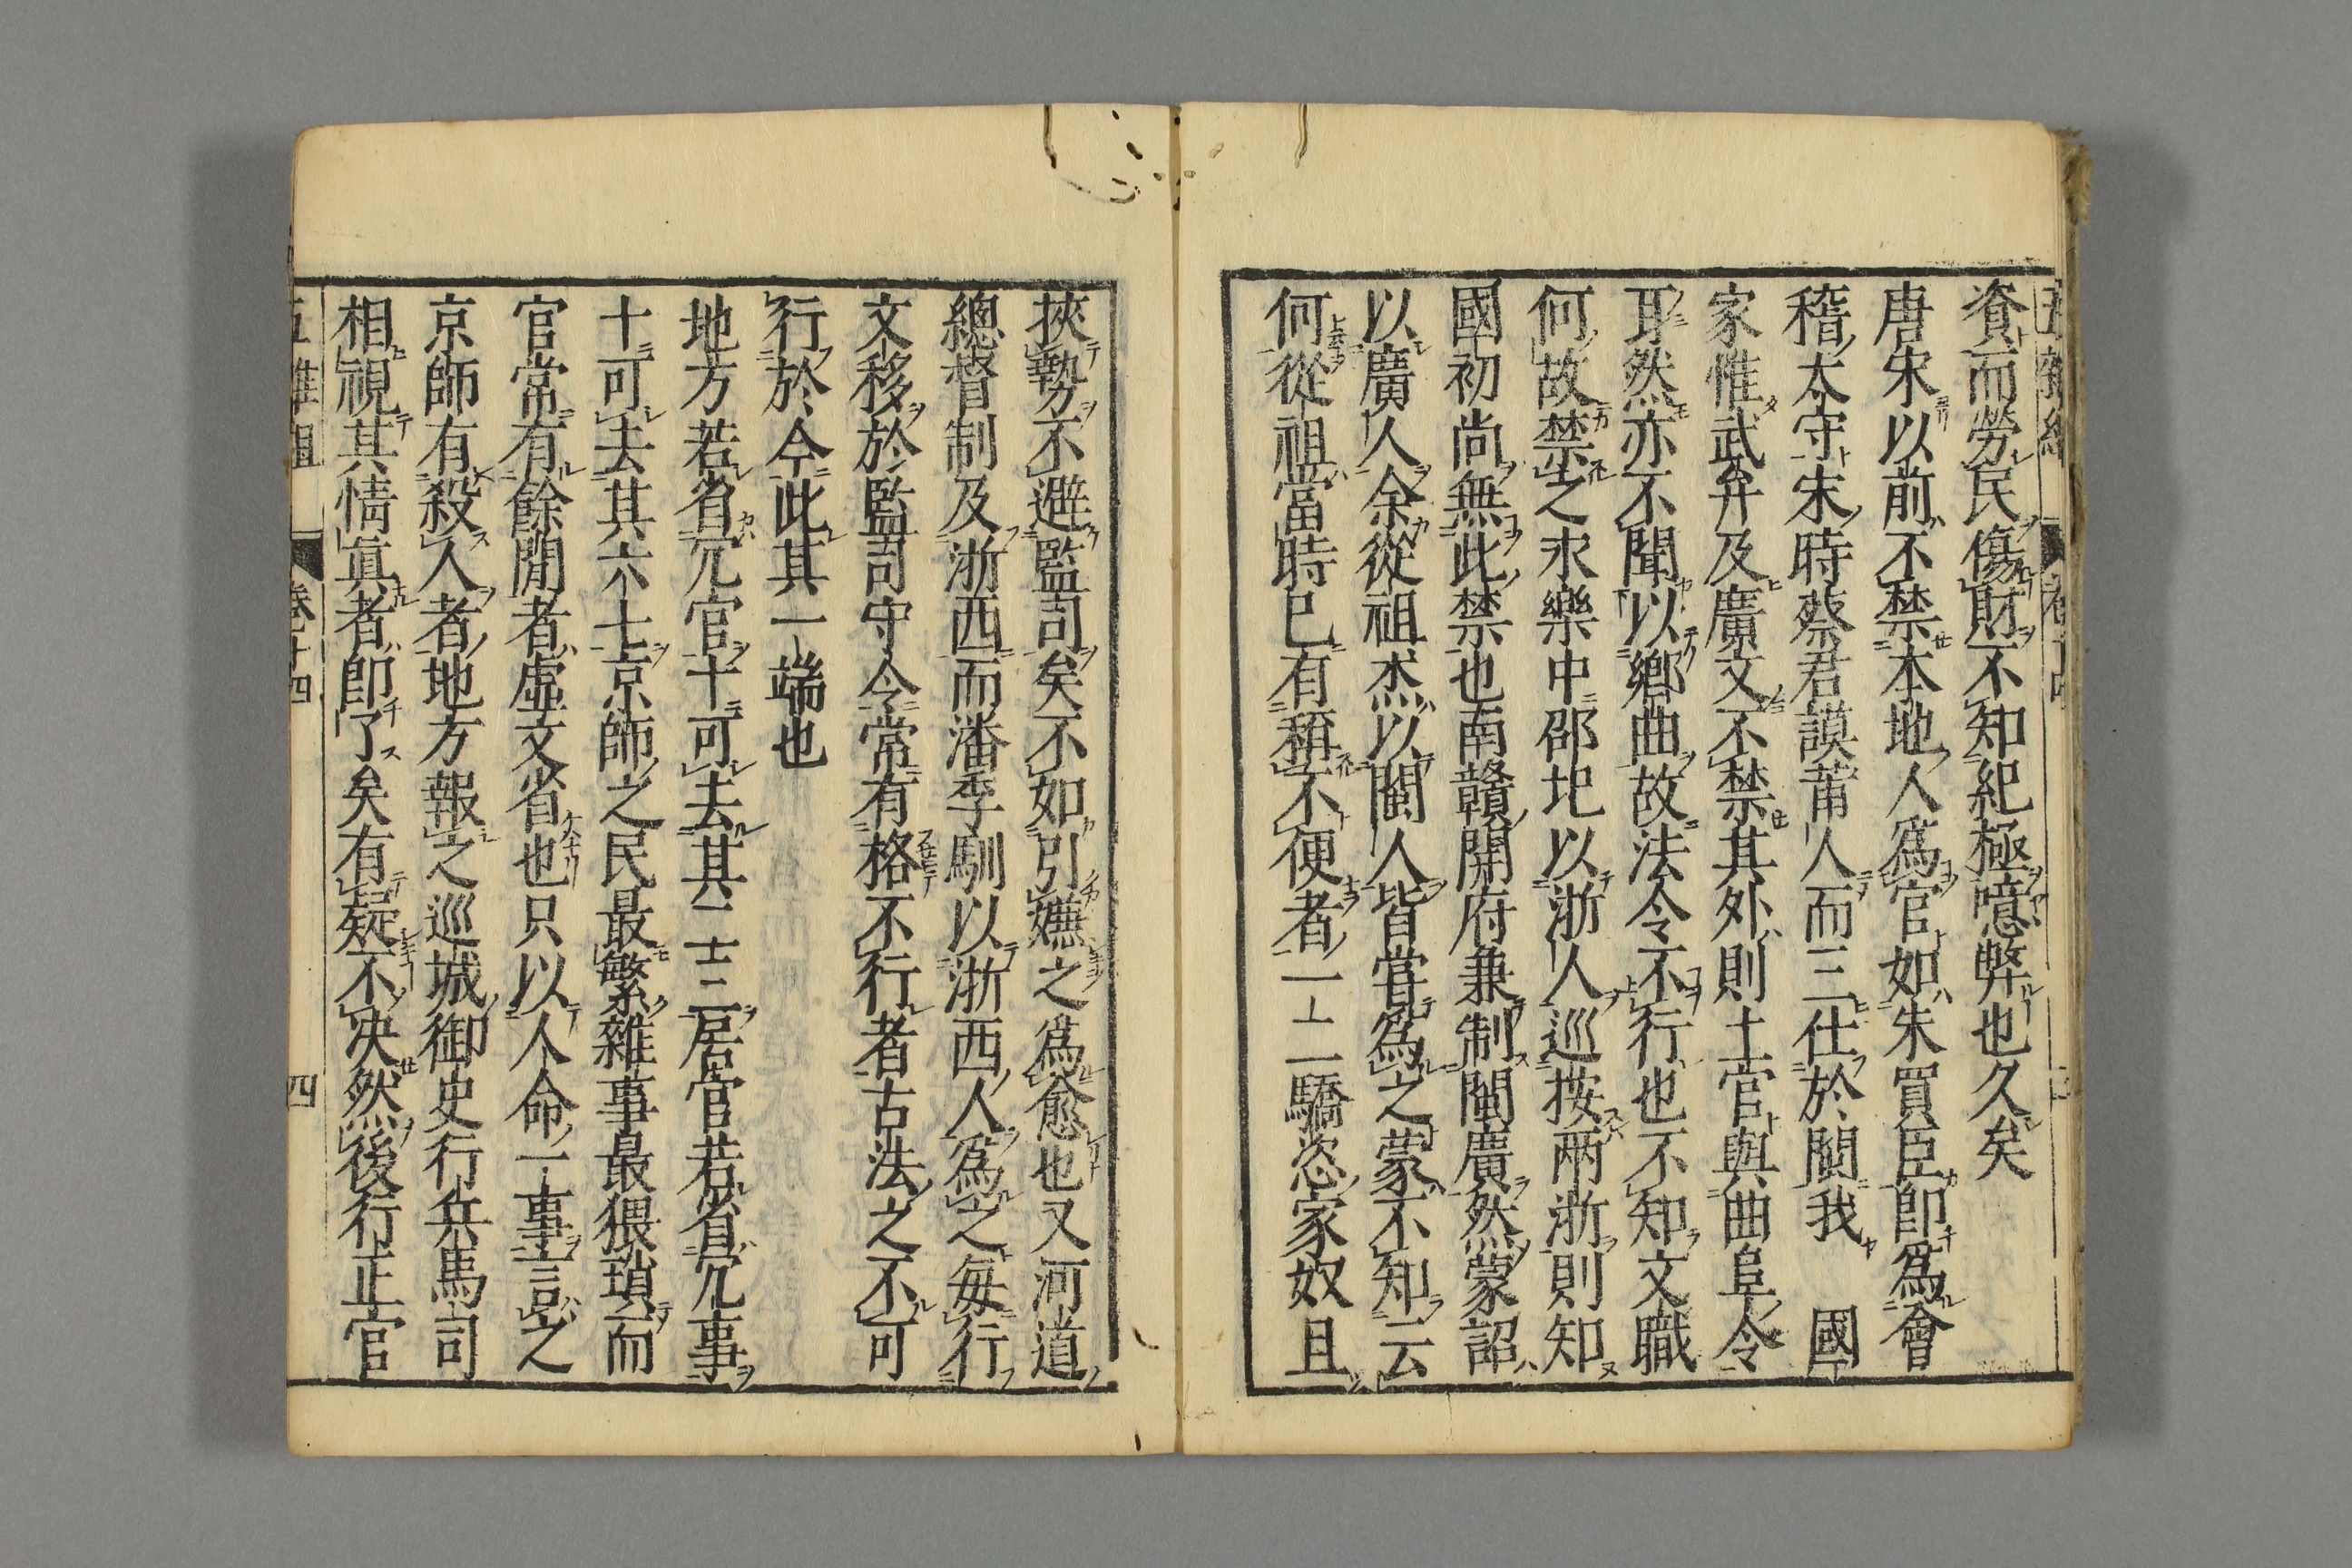 資而勞民傷財不知紀極噫弊也久矣
唐宋以前不禁本地人爲官如朱買臣卽爲會
稽太守宋時蔡君謨莆人而三仕於閩我　國
家惟武弁及廣文不禁其外則土官與曲阜令
耳然亦不聞以鄉曲故法令不行也不知文職
何故禁之永樂中邵玘以浙人巡按兩浙則知
國初尚無此禁也南贛開府兼制閩廣然蒙詔
以廣人余從祖杰以閩人皆嘗爲之蒙不知云
何從祖當時已有種種不便者一二驕恣家奴且
挾勢不避監司矣不如引嫌之爲愈也又河道
總督制及浙西而潘季馴以浙西人爲之每行
文移於監司守令常有格不行者古法之不可
行於今此其一端也
地方若省冗官十可去其二三居官若省冗事
十可去其六七京師之民最繁雜事最猥瑣而
官常有餘閒者虛文省也只以人命一事言之
京師有殺人者地方報之巡城御史行兵馬司
相視其情真者卽了矣有疑不決然後行正官
五雜俎
卷十四
四